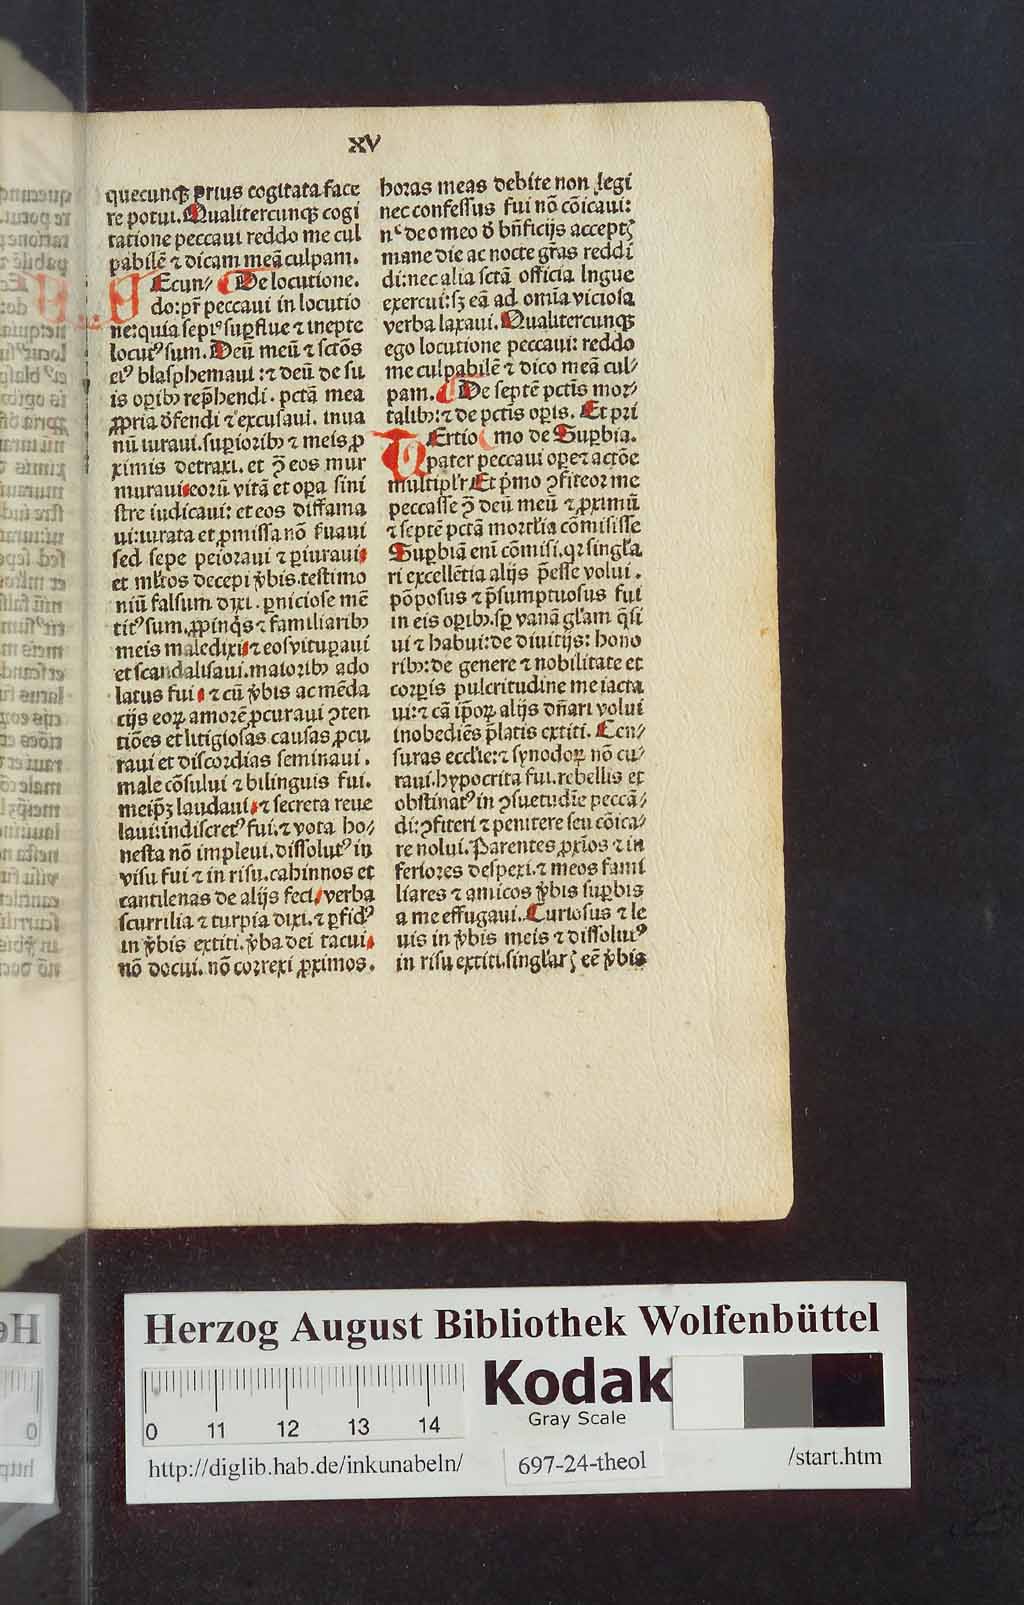 XV
quecunqꝫ prius cogitata face
re potui. Qualitercunqꝫ cogi
tatione peccaui reddo me cul
pabilē ⁊ dicam meā culpam.
SEcun⸗ De locutione.
do: pr̄ peccaui in locutio
ne: quia sepiꝰ suꝑflue ⁊ inepte
locutꝰ sum. Deū meū ⁊ sctōs
eiꝰ blasphemaui: ⁊ deū de su
is oꝑibꝫ rep̄hendi. pctā mea
ꝓpria d̄fendi ⁊ excusaui. inua
nū iuraui. suꝑioribꝫ ⁊ meis ꝓ
ximis detraxi. et ꝯ̄ eos mur
muraui eorū vitā et oꝑa sini
stre iudicaui: et eos diffama
ui: iurata et ꝓmissa nō ẜuaui
sed sepe peioraui ⁊ ꝑiuraui
et mltos decepi v̄bis. testimo
niū falsum dixi. ꝑniciose mē
titꝰ sum. ꝓpinq̇s ⁊ familiaribꝫ
meis maledixi ⁊ eos vituꝑaui
et scandalisaui. maioribꝫ ado
latus fui ⁊ cū v̄bis ac mēda
cijs eoꝝ amorē ꝓcuraui ꝯten
tiōes et litigiosas causas ꝓcu
raui et discordias seminaui.
male cōsului ⁊ bilinguis fui.
meip̄ꝫ laudaui ⁊ secreta reue
laui: indiscretꝰ fui. ⁊ vota ho⸗
nesta nō impleui. dissolutꝰ in
visu fui ⁊ in risu. cahinnos et
cantilenas de alijs feci verba
scurrilia ⁊ turpia dixi. ⁊ ꝑfidꝰ
in v̄bis extiti. v̄ba dei tacui
nō docui. nō correxi ꝓximos.
horas meas debite non legi
nec confessus fui nō cōicaui:
nᶜ deo meo d̄ bn̄ficijs acceptꝭ
mane die ac nocte gr̄as reddi
di: nec alia sctā officia lngue
exercui: sꝫ eā ad om̄ia viciosa
verba laxaui. Qualitercunqꝫ
ego locutione peccaui: reddo
me culpabilē ⁊ dico meā cul⸗
pam. De septē pctis mor⸗
talibꝫ: ⁊ de pctis oꝑis. Et pri
TErtio mo de Suꝑbia.
pater peccaui oꝑe ⁊ actōe
multipl'r Et p̄mo ꝯfiteor me
peccasse ꝯ̄ deū meū ⁊ ꝓximū
⁊ septē pctā mortlia cōmisisse
Suꝑbiā eni cōmisi. qꝛ singl'a
ri excellētia alijs p̄esse volui.
pōposus ⁊ p̄sumptuosus fui
in eis oꝑibꝫ. sꝑ vanā gl'am q̄si
ui ⁊ habui: de diuitijs: hono
ribꝫ: de genere ⁊ nobilitate et
corꝑis pulcritudine me iacta
ui: ⁊ cā ip̄oꝝ alijs dn̄ari volui
inobediēs p̄latis extiti. Cen⸗
suras eccl'ie: ⁊ synodoꝝ nō cu⸗
raui. hypocrita fui. rebellis et
obstinatꝰ in ꝯsuetudīe peccā⸗
di: ꝯfiteri ⁊ penitere seu cōica⸗
re nolui. Parentes ꝓxīos ⁊ in
feriores despexi. ⁊ meos fami
liares ⁊ amicos v̄bis suꝑbis
a me effugaui. Curiosus ⁊ le
uis in v̄bis meis ⁊ dissolutꝰ
in risu extiti. singl'arꝭ eē v̄bis
Herzog August Bibliothek Wolfenbüttel
0 11 12 13 14
Kodak
Gray Scale
http://diglib.hab.de/inkunabeln/ 697-24-theol /start.htm